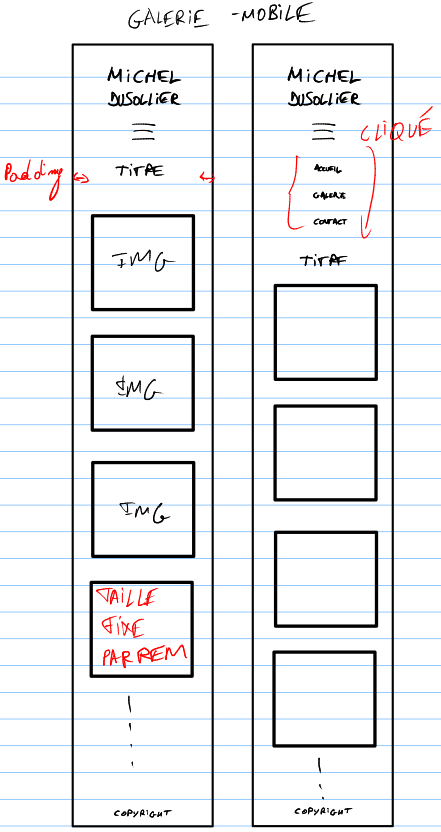 GALERIE - MOBILE
MICHEL
DUSOLLIER
TITRE
Padding
IMG
IMG
IMG
TAILLE
FIXE
PAR REM
COPYRIGHT
MICHEL
DUSOLLIER
CLIQUÉ
ACCUEIL
GALERIE
CONTACT
TITRE
COPYRIGHT